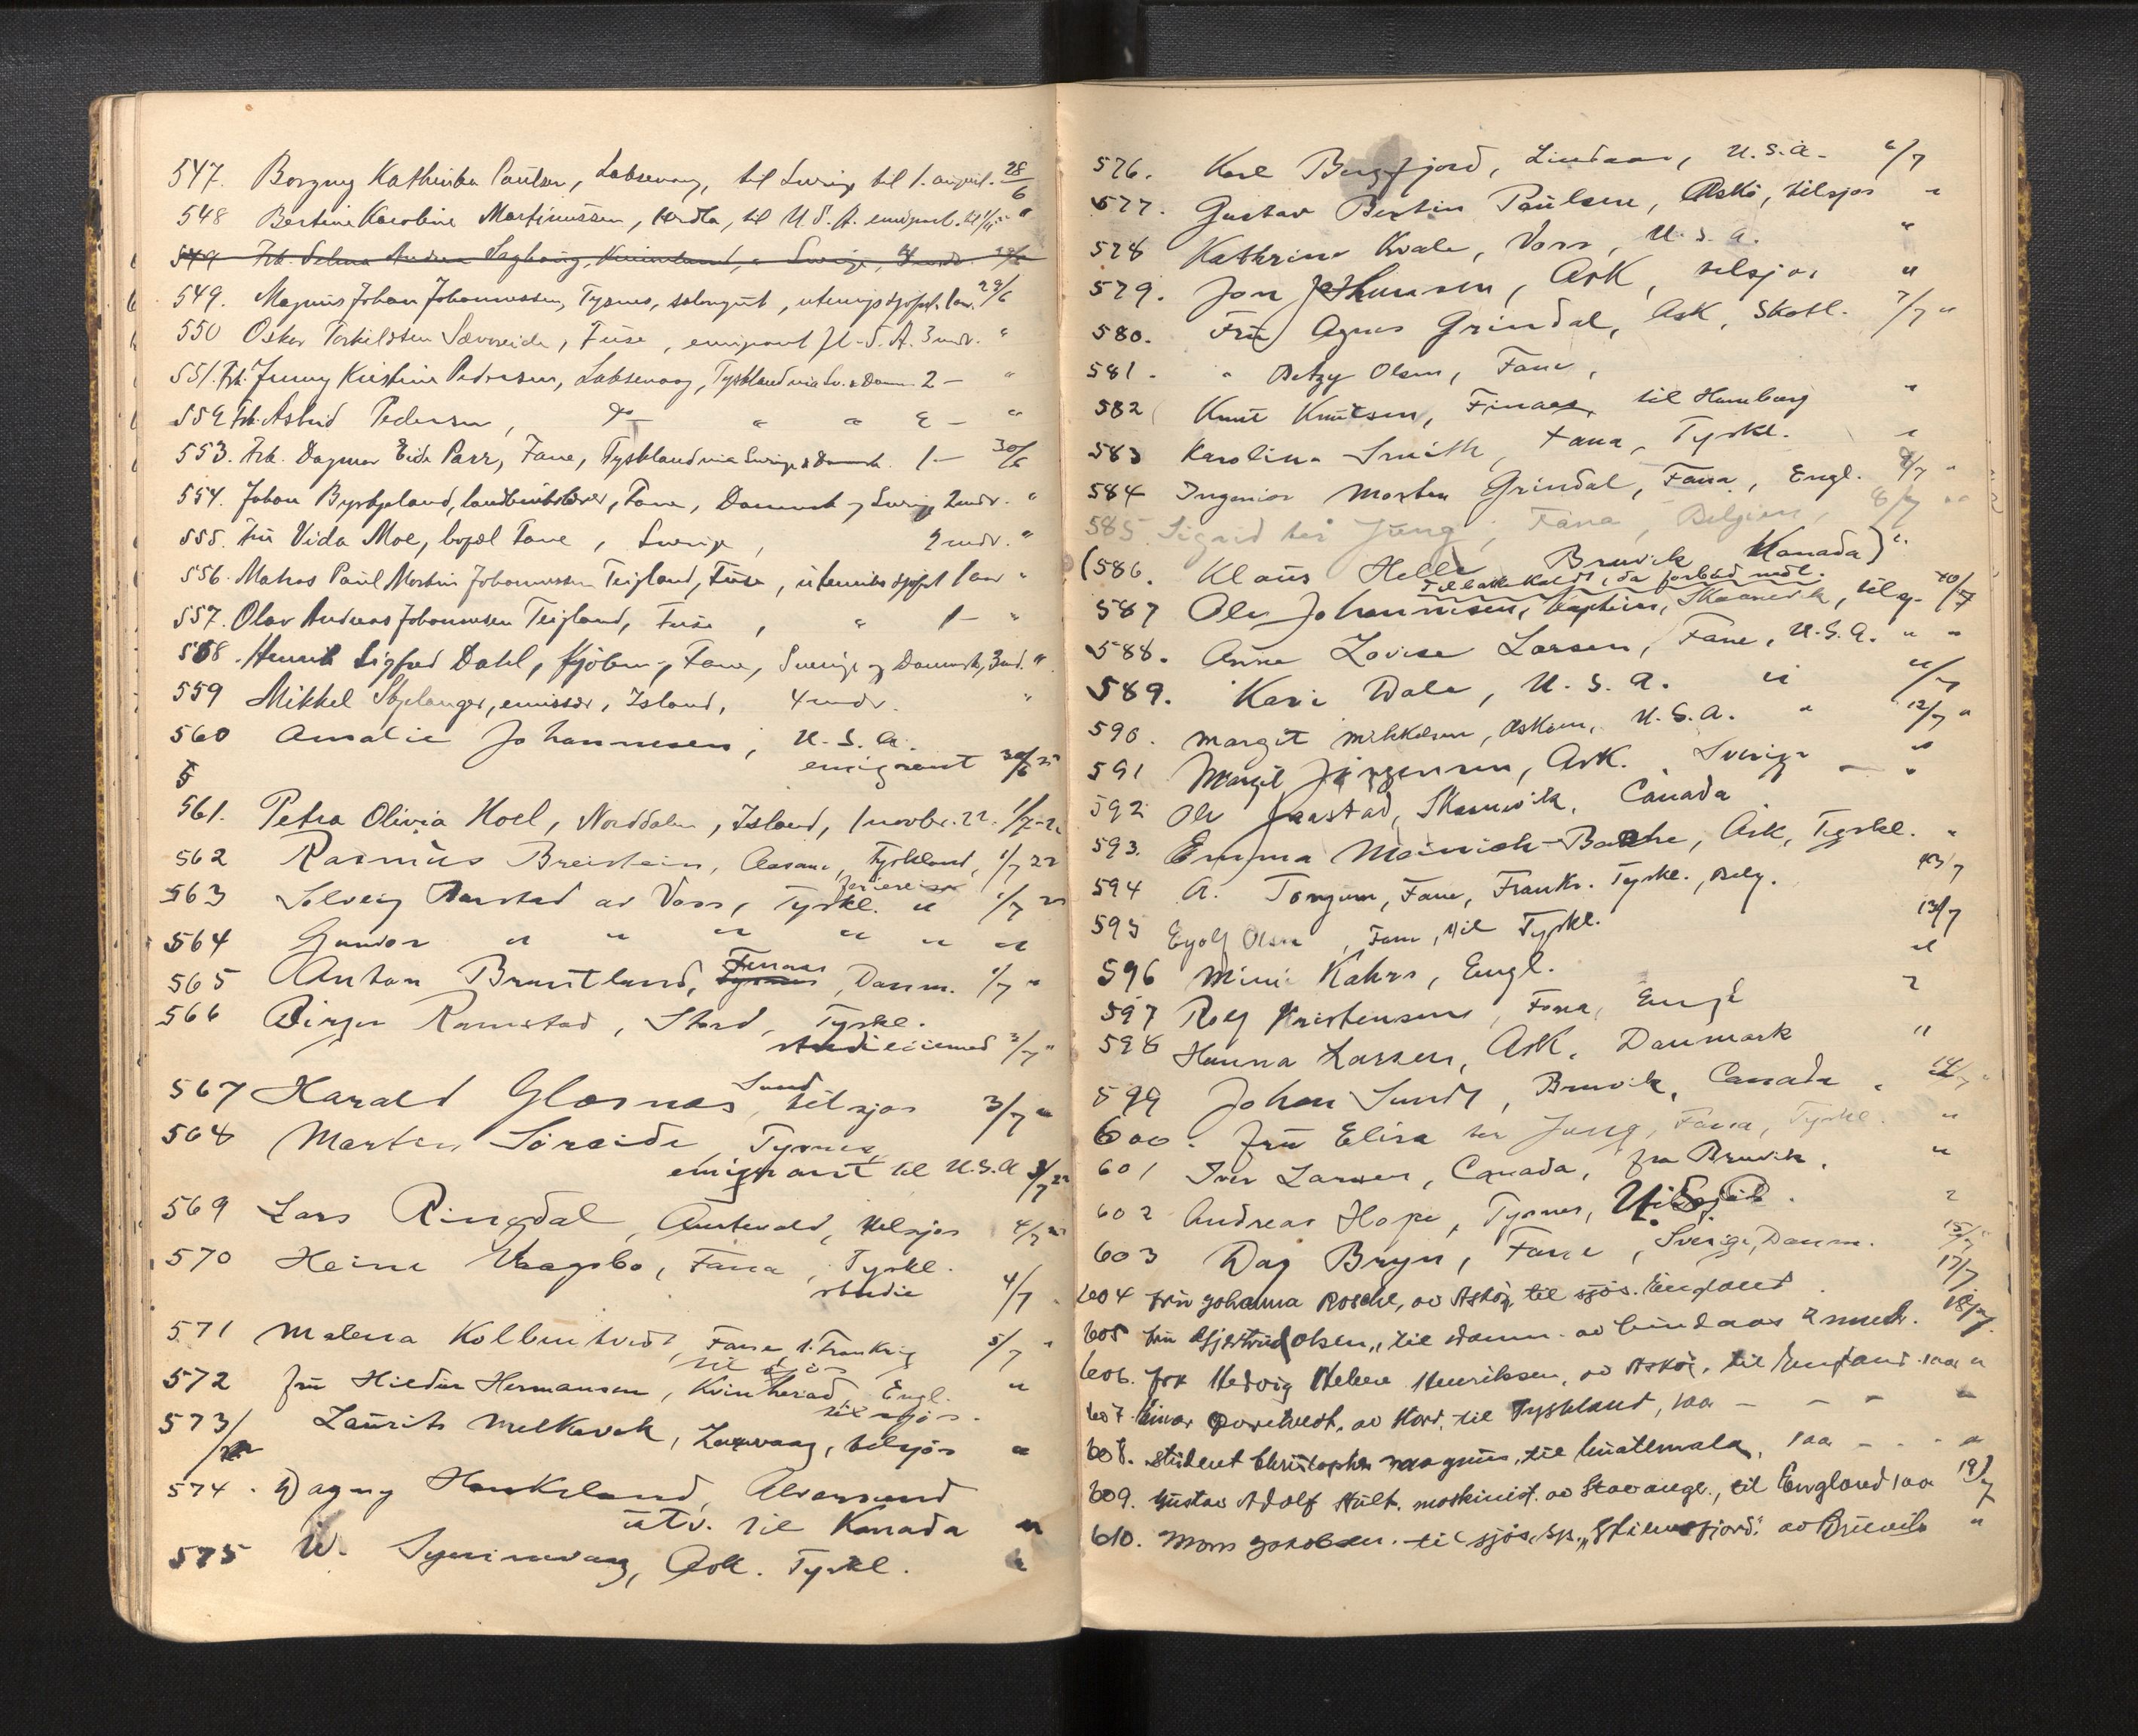 547. Borgny Kathinka Paulsen, Laksevaag, til Sverige til 1. august. 28/6
548 Bertine Karoline Martinussen, Herdla, til U.S.A. emigrant. "
549 Frk. Selma Andrea Sverige, 29/6
549. Magnus Johan Johannessen, Tysnes, utenrigs sjøfart 1 aar. 29/6
550 Oskar Torkildsen Sævareide, Fuse, emigrant U.S.A. 3 mdr. "
551. Frk. Jenny Kristine Pedersen, Laksevaag, Tyskland via Sv. & Danm. 2 — "
552 Frk. Astrid Pedersen, " " 2 — "
553. Frk. Dagmar Eide Parr, Fane, Tyskland via Sverige & Danmark. 1 — 30/6
554. Johan Byrkjeland, landbrukslærer, Fane, Danmark og Sverige 2 mdr. "
555. Fru Vida Moe, Fane, Sverige, 2 mdr. "
556. Mathias Paul Martin Johannessen Teigland, Fuse, utenriks sjøfart 1 aar "
557. Olav Andreas Johannessen Teigland, Fuse, " 1 — "
558. Henrik Sigfred Dahl, Fane, Sverige og Danmark, 3 md. "
559 Mikkel Skjelanger, emissær, Island, 4 mdr. "
560 Amalie Johannesen, U.S.A.
emigrant 30/6 22
5
561. Petra Olivia Hoel, Norddalen, Island, 1 novbr. 22. 1/7-22
562 Rasmus Breistein, Aasane, Tyskland, 1/7 22
feriereise
563 Solveig Aarstad av Voss, Tyskl. " 1/7 22
564 Gunvor " " " " " "
565 Anton Bruntland, Tysnes Finnaas, Danm. 1/7 "
566 Birger Ramstad, Stord, Tyskl.
3/7 "
567 Harald Glasnæs, Sund, tilsjøs 3/7 "
568 Marten Søreide Tysnes,
emigrant til U.S.A 3/7 22
569 Lars Ringdal, Austevold, tilsjøs 4/7 22
570 Heine Vaagsbø, Fana, Tyskl.
studie 4/7 "
571 Malena Kolbentvedt, Fana, t. Frankrig 5/7 "
til sjøs
572 Fru Hildur Hermansen, Kvinherad, Engl. "
til sjøs.
573/ Laurits Melkevik, Laxevaag, tilsjøs "
574. Dagny Haukeland, Alversund
utv. til Kanada "
575 W. Ask. Tyskl. "
576. Karl Bergfjord, Lindaas, U.S.A. 6/7
577. Gustav Bertin Paulsen, Askø, tilsjøs "
578 Kathrine Kvale, Voss, U.S.A. "
579. Jon Johannesen, Ask, tilsjøs "
580. Fru Agnes Grindal, Ask, Skotl. 7/7 "
581. " Betzy Olsen, Fane,
582 Knut Knutsen, Finaas, til Hamburg "
583 Karoline Smith, Fana, Tyskl. "
584 Ingeniør Morten Grindal, Fana, Engl. 8/7 "
585 Sigrid ter Jung, Fana, Belgien, 8/7 "
(586. Klaus Helle Bruvik Kanada) "
Tilbakekaldt, da forbud nedl.
587 Ole Johannesen, kaptein, Skaanevik, tilsj. 10/7
588. Anna Lovise Larsen, Fane, U.S.A. " "
589. Kari Dale, U.S.A. " 11/7
590. Margit Mikkelsen, Askøen, U.S.A. " 12/7 "
591 Margit Jørgensen, Ask. Sverige — "
592 Ole Jaastad, Skaanevik, Canada "
593. Emma Meinich-Bache, Ask, Tyskl. "
594 A. Torgum, Fane, Frankr. Tyskl., Belg. 13/7
595 Eyolf Olsen, Fane, til Tyskl. 13/7
596 Mimi Kahrs, Engl. "
597 Rolf Kristensen, Fana, Engl "
598 Hanna Larsen, Ask, Danmark "
599 Johan Sundt, Bruvik, Canada. 14/7 "
600. Fru Elisa ter Jung, Fana, Tyskl. "
601 Iver Larsen, Canada, fra Bruvik. "
602 Andreas Hope, Tysnes, "
603 Dag Bryn, Fane, Sverige, Danm. 15/7
604 Fru Johanna Rosche, av Askøy, til sjøs. England 17/7
605 Fru Gjertrud Olsen, til Danm. av Lindaas 2 mndr. 18/7
606. Frk Hedvig Helene Henriksen, av Askøy, til England 1 aar "
607. Einar av Stord, til Tyskland, 1 aar — — — "
608. Student Christopher Magnus, til Guatemala, 1 aa — . . "
609. Gustav Adolf Hult. maskinist. av Stavanger, til England 1 aa 19/7
610. Mons Jakobsen. til sjøs. av Bruvik "